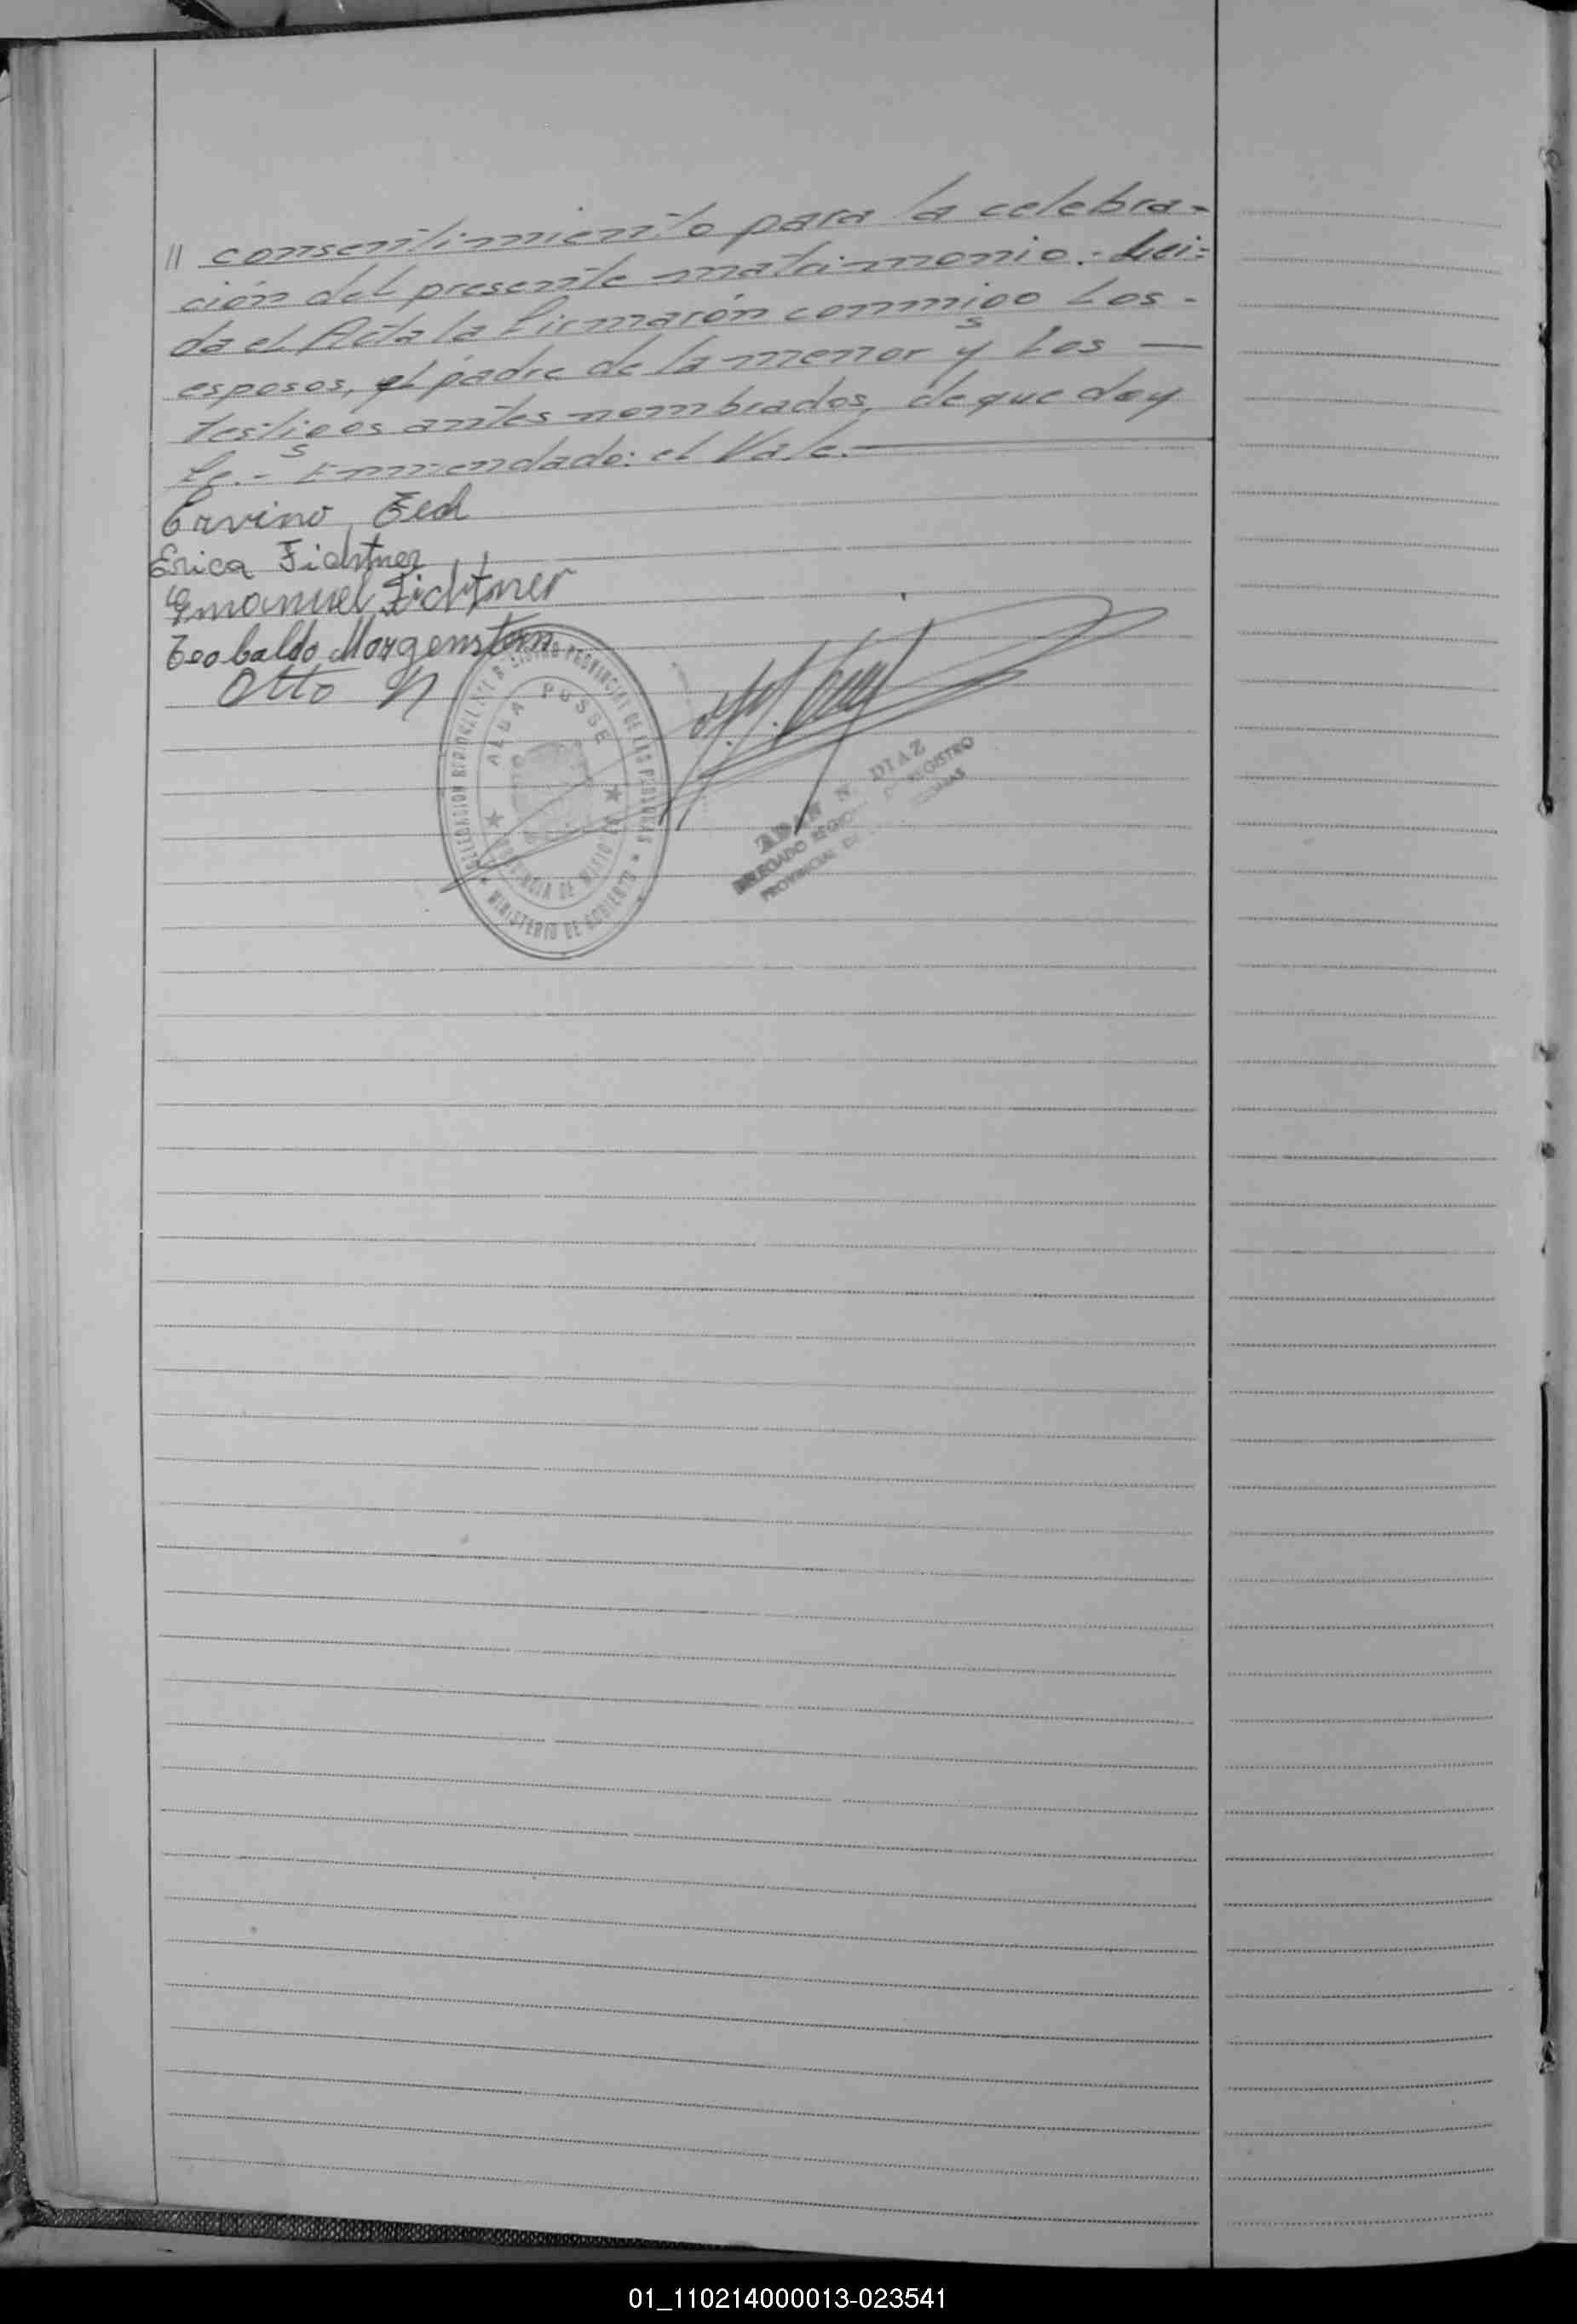 // consentimiento para la celebra-
ción del presente matrimonio.- Lei-
da el Acta la firmarón conmigo los -
esposos, el padre de la menor y los —
testigos antes nombrados, de que doy
fe.- Enmendado: el Vale.—
Ervino
Erica Fichtner
Emanuel Fichtner
Teobaldo Morgenstern
Otto N
DELEGACION REGIONAL REGISTRO PROVINCIAL DE LAS PERSONAS
ALBA POSSE
PROVINCIA DE MISIONES
MINISTERIO DE GOBIERNO
ADAN N. DIAZ
DELEGADO REGIONAL REGISTRO
PROVINCIAL DE PERSONAS
01_110214000013-023541